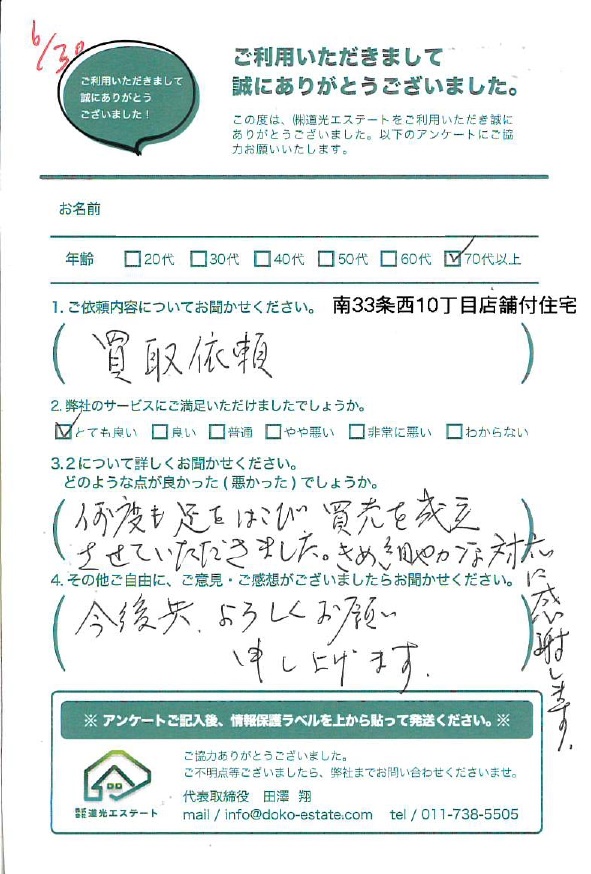 6/30
ご利用いただきまして
誠にありがとう
ございました!
ご利用いただきまして
誠にありがとうございました。
この度は、㈱道光エステートをご利用いただき誠に
ありがとうございました。以下のアンケートにご協
力お願いいたします。
お名前
年齢 □20代 □30代 □40代 □50代 □60代 ☑70代以上
1.ご依頼内容についてお聞かせください。 南33条西10丁目店舗付住宅
買取依頼
2.弊社のサービスにご満足いただけましたでしょうか。
☑とても良い □良い □普通 □やや悪い □非常に悪い □わからない
3.2について詳しくお聞かせください。
どのような点が良かった(悪かった)でしょうか。
何度も足をはこび買売を成立
させていただきました。きめ細やかな対応
に感謝します。
4.その他ご自由に、ご意見・ご感想がございましたらお聞かせください。
今後共、よろしくお願い
申し上げます。
※ アンケートご記入後、情報保護ラベルを上から貼って発送ください。※
ご協力ありがとうございました。
ご不明点等ございましたら、弊社までお問い合わせくださいませ。
代表取締役 田澤 翔
mail / info@doko-estate.com tel / 011-738-5505
株式会社 道光エステート